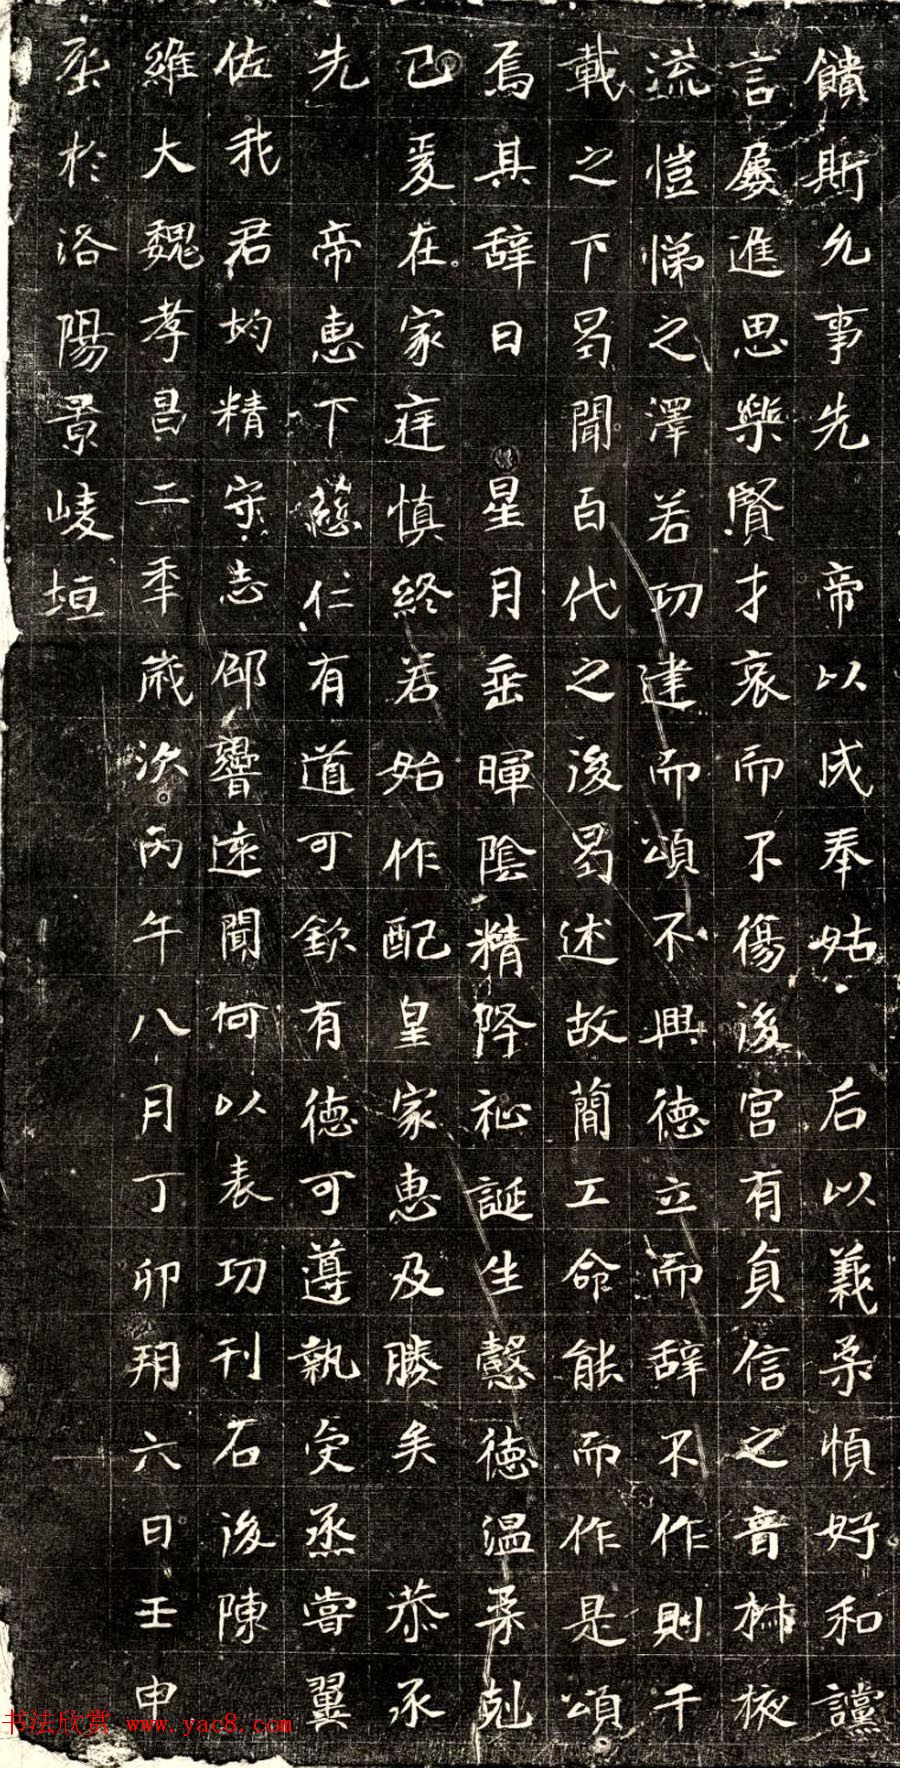 饋斯允事先　帝以成奉姑　后以義柔慎好和讜
言屢進思樂賢才哀而不傷後宮有貞信之音椒掖
流愷悌之澤若功建而頌不興德立而辞不作則千
載之下曷聞百代之後曷述故簡工命能而作是頌
焉其辞曰　星月垂暉陰精降祉誕生懿德温柔剋
已爰在家庭慎終若始作配皇家惠及媵矣　恭承
先　帝惠下慈仁有道可欽有德可遵執受烝嘗翼
佐我君灼精守志邵響遠聞何以表功刊石後陳
維大魏孝昌二年歲次丙午八月丁卯朔六日壬申
於洛陽景崚垣
书法欣赏 www.yac8.com